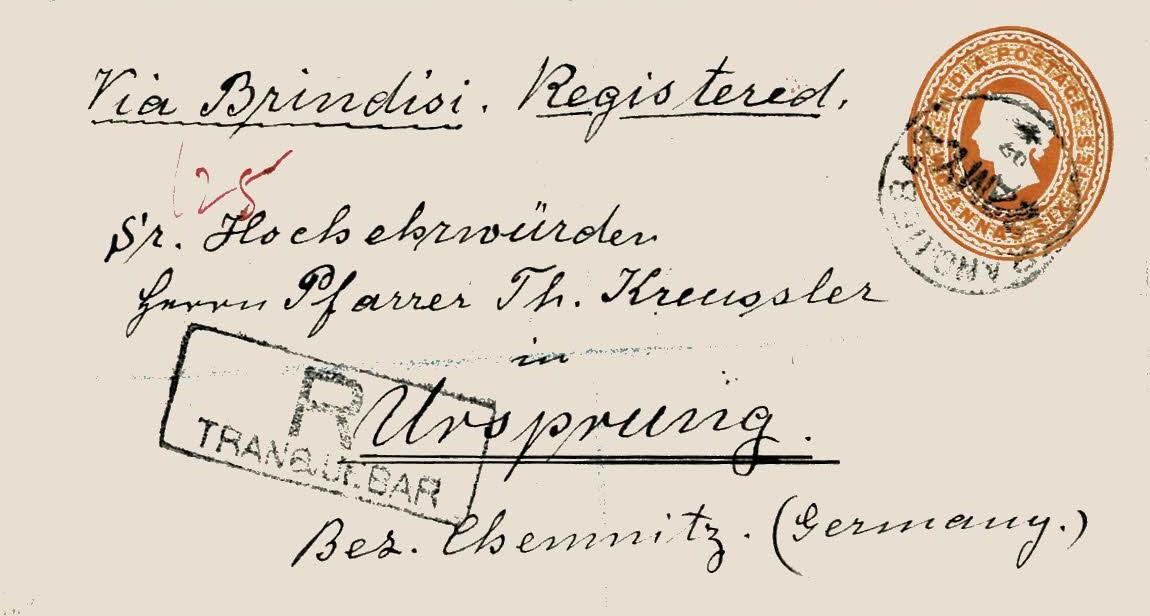 Via Brindisi. Registered.
INDIA POSTAGE
TRANQUEBAR
125
Sr. Hochehrwürden
Herrn Pfarrer Th. Kreussler
in
Ursprung.
R
TRANQUEBAR
Bez. Chemnitz. (Germany.)